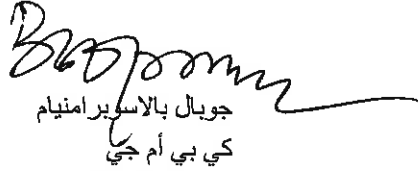 جوبال بالاسوبرامنيام
كي بي أم جي